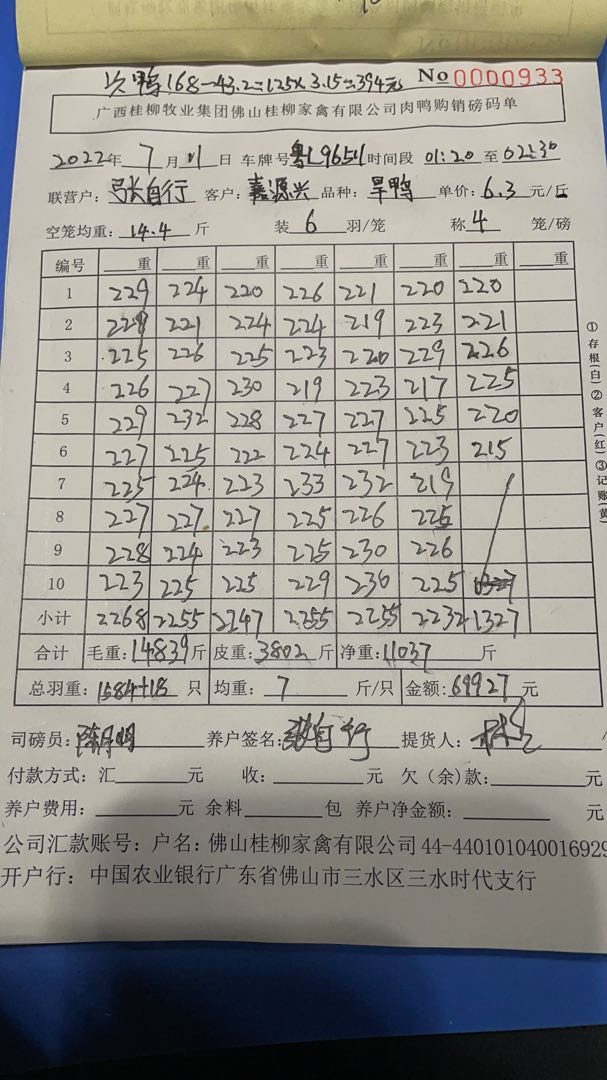 次鸭168-43.2=125×3.15=394元 No 0000933
广西桂柳牧业集团佛山桂柳家禽有限公司肉鸭购销磅码单
2022年 7 月 11 日 车牌号 粤L9654 时间段 01:20 至 02:30
联营户: 张自行 客户: 嘉源兴 品种: 旱鸭 单价: 6.3 元/斤
空笼均重: 14.4 斤 装 6 羽/笼 称 4 笼/磅
编号 重 重 重 重 重 重 重 重
1 229 224 220 226 221 220 220
2 229 221 224 224 219 223 221
3 225 226 225 223 220 229 226
4 226 227 230 219 223 217 225
5 229 232 228 227 227 225 220
6 227 225 222 224 227 223 215
7 225 224 223 233 232 219
8 227 227 227 225 226 225
9 228 224 223 225 230 226
10 223 225 225 229 230 225
小计 2268 2255 2247 2255 2255 2232 1327
合计 毛重: 14839 斤 皮重: 3802 斤 净重: 11037 斤
总羽重: 1584+18 只 均重: 7 斤/只 金额: 69927 元
司磅员: 养户签名: 张自行 提货人:
付款方式: 汇 元 收: 元 欠(余)款: 元
养户费用: 元 余料 包 养户净金额: 元
公司汇款账号: 户名: 佛山桂柳家禽有限公司 44-440101040016929
开户行: 中国农业银行广东省佛山市三水区三水时代支行
①存根(白)②客户(红)③记账(黄)